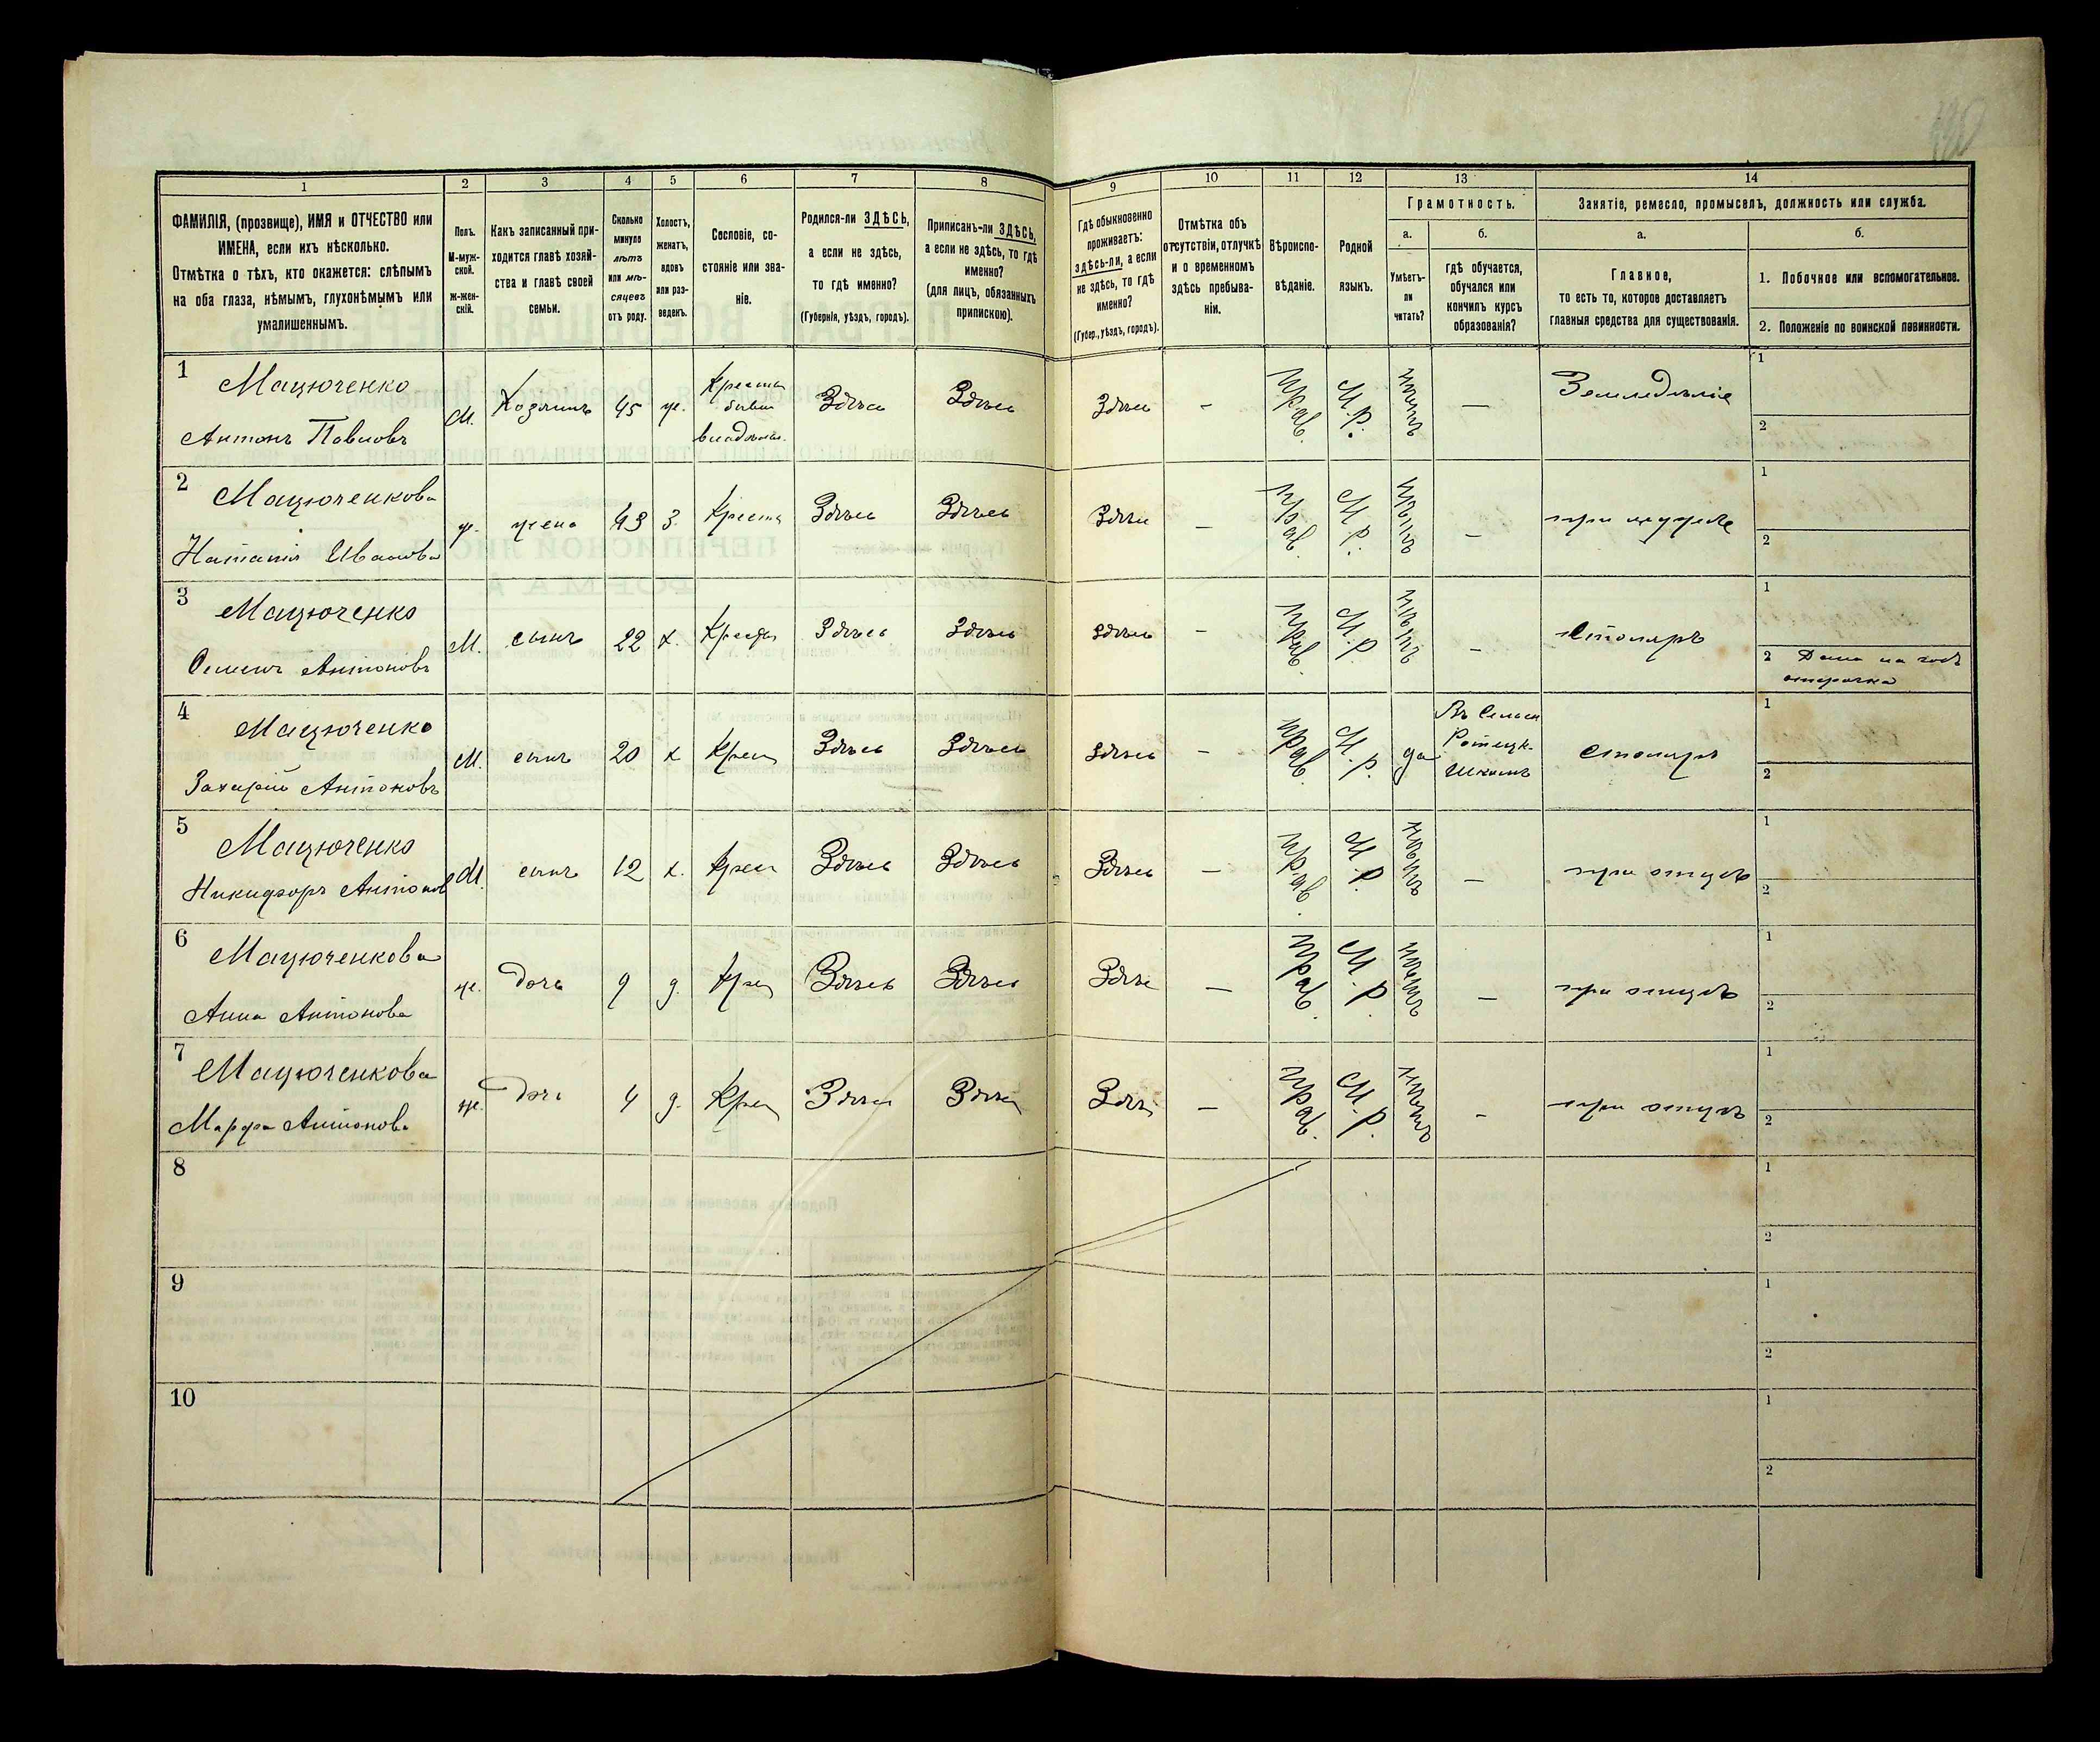 1 2 3 4 5 6 7 8 9 10 11 12 13 14
ФАМИЛІЯ, (прозвище), ИМЯ и ОТЧЕСТВО или
ИМЕНА, если ихъ нѣсколько.
Отмѣтка о тѣхъ, кто окажется: слѣпымъ
на оба глаза, нѣмымъ, глухонѣмымъ или
умалишеннымъ.
Полъ.
М-муж-
ской.
ж-жен-
скій.
Какъ записанный при-
ходится главѣ хозяй-
ства и главѣ своей
семьи.
Сколько
минуло
лѣтъ
или мѣ-
сяцевъ
отъ роду.
Холостъ,
женатъ,
вдовъ
или раз-
веденъ.
Сословіе, со-
стояніе или зва-
ніе.
Родился-ли ЗДѢСЬ,
а если не здѣсь,
то гдѣ именно?
(Губернія, уѣздъ, городъ).
Приписанъ-ли ЗДѢСЬ,
а если не здѣсь, то гдѣ
именно?
(для лицъ, обязанныхъ
припискою).
Гдѣ обыкновенно
проживаетъ:
здѣсь-ли, а если
не здѣсь, то гдѣ
именно?
(Губер., уѣздъ, городъ).
Отмѣтка объ
отсутствіи, отлучкѣ
и о временномъ
здѣсь пребыва-
ніи.
Вѣроиспо-
вѣданіе.
Родной
языкъ.
Грамотность.
а.
Умѣетъ-
ли
читать?
б.
гдѣ обучается,
обучался или
кончилъ курсъ
образованія?
Занятіе, ремесло, промыселъ, должность или служба.
а.
Главное,
то есть то, которое доставляетъ
главныя средства для существованія.
б.
1. Побочное или вспомогательное.
2. Положеніе по воинской повинности.
1 Мацюченко
Антонъ Павловъ
М. Хозяинъ 45 ж. Крестья бывш владѣльч. Здѣсь Здѣсь Здѣсь – Прав. М.Р. нѣтъ – Земледѣліе 1
2
2 Мацюченкова
Наталія Иванова
ж. жена 43 З. Крестья Здѣсь Здѣсь Здѣсь – Прав. М.Р. нѣтъ – при мужѣ 1
2
3 Мацюченко
Семенъ Антоновъ
М. сынъ 22 х. Кресть Здѣсь Здѣсь Здѣсь – Прав. М.Р. нѣтъ – Столяръ 1
2 Дана на годъ
отсрочка
4 Мацюченко
Захарій Антоновъ
М. сынъ 20 х Крест Здѣсь Здѣсь Здѣсь – Прав. М.Р. да Въ Сельск
Школѣ
Столяръ 1
2
5 Мацюченко
Никифоръ Антонов
М. сынъ 12 х. Крест Здѣсь Здѣсь Здѣсь – Прав. М.Р. нѣтъ – при отцѣ 1
2
6 Мацюченкова
Анна Антонова
ж. дочь 9 д. Крес Здѣсь Здѣсь Здѣсь – Прав. М.Р. нѣтъ – при отцѣ 1
2
7 Мацюченкова
Марфа Антонова
ж. дочь 4 д. Крес Здѣсь Здѣсь Здѣсь – Прав. М.Р. нѣтъ – при отцѣ 1
2
8 1
2
9 1
2
10 1
2